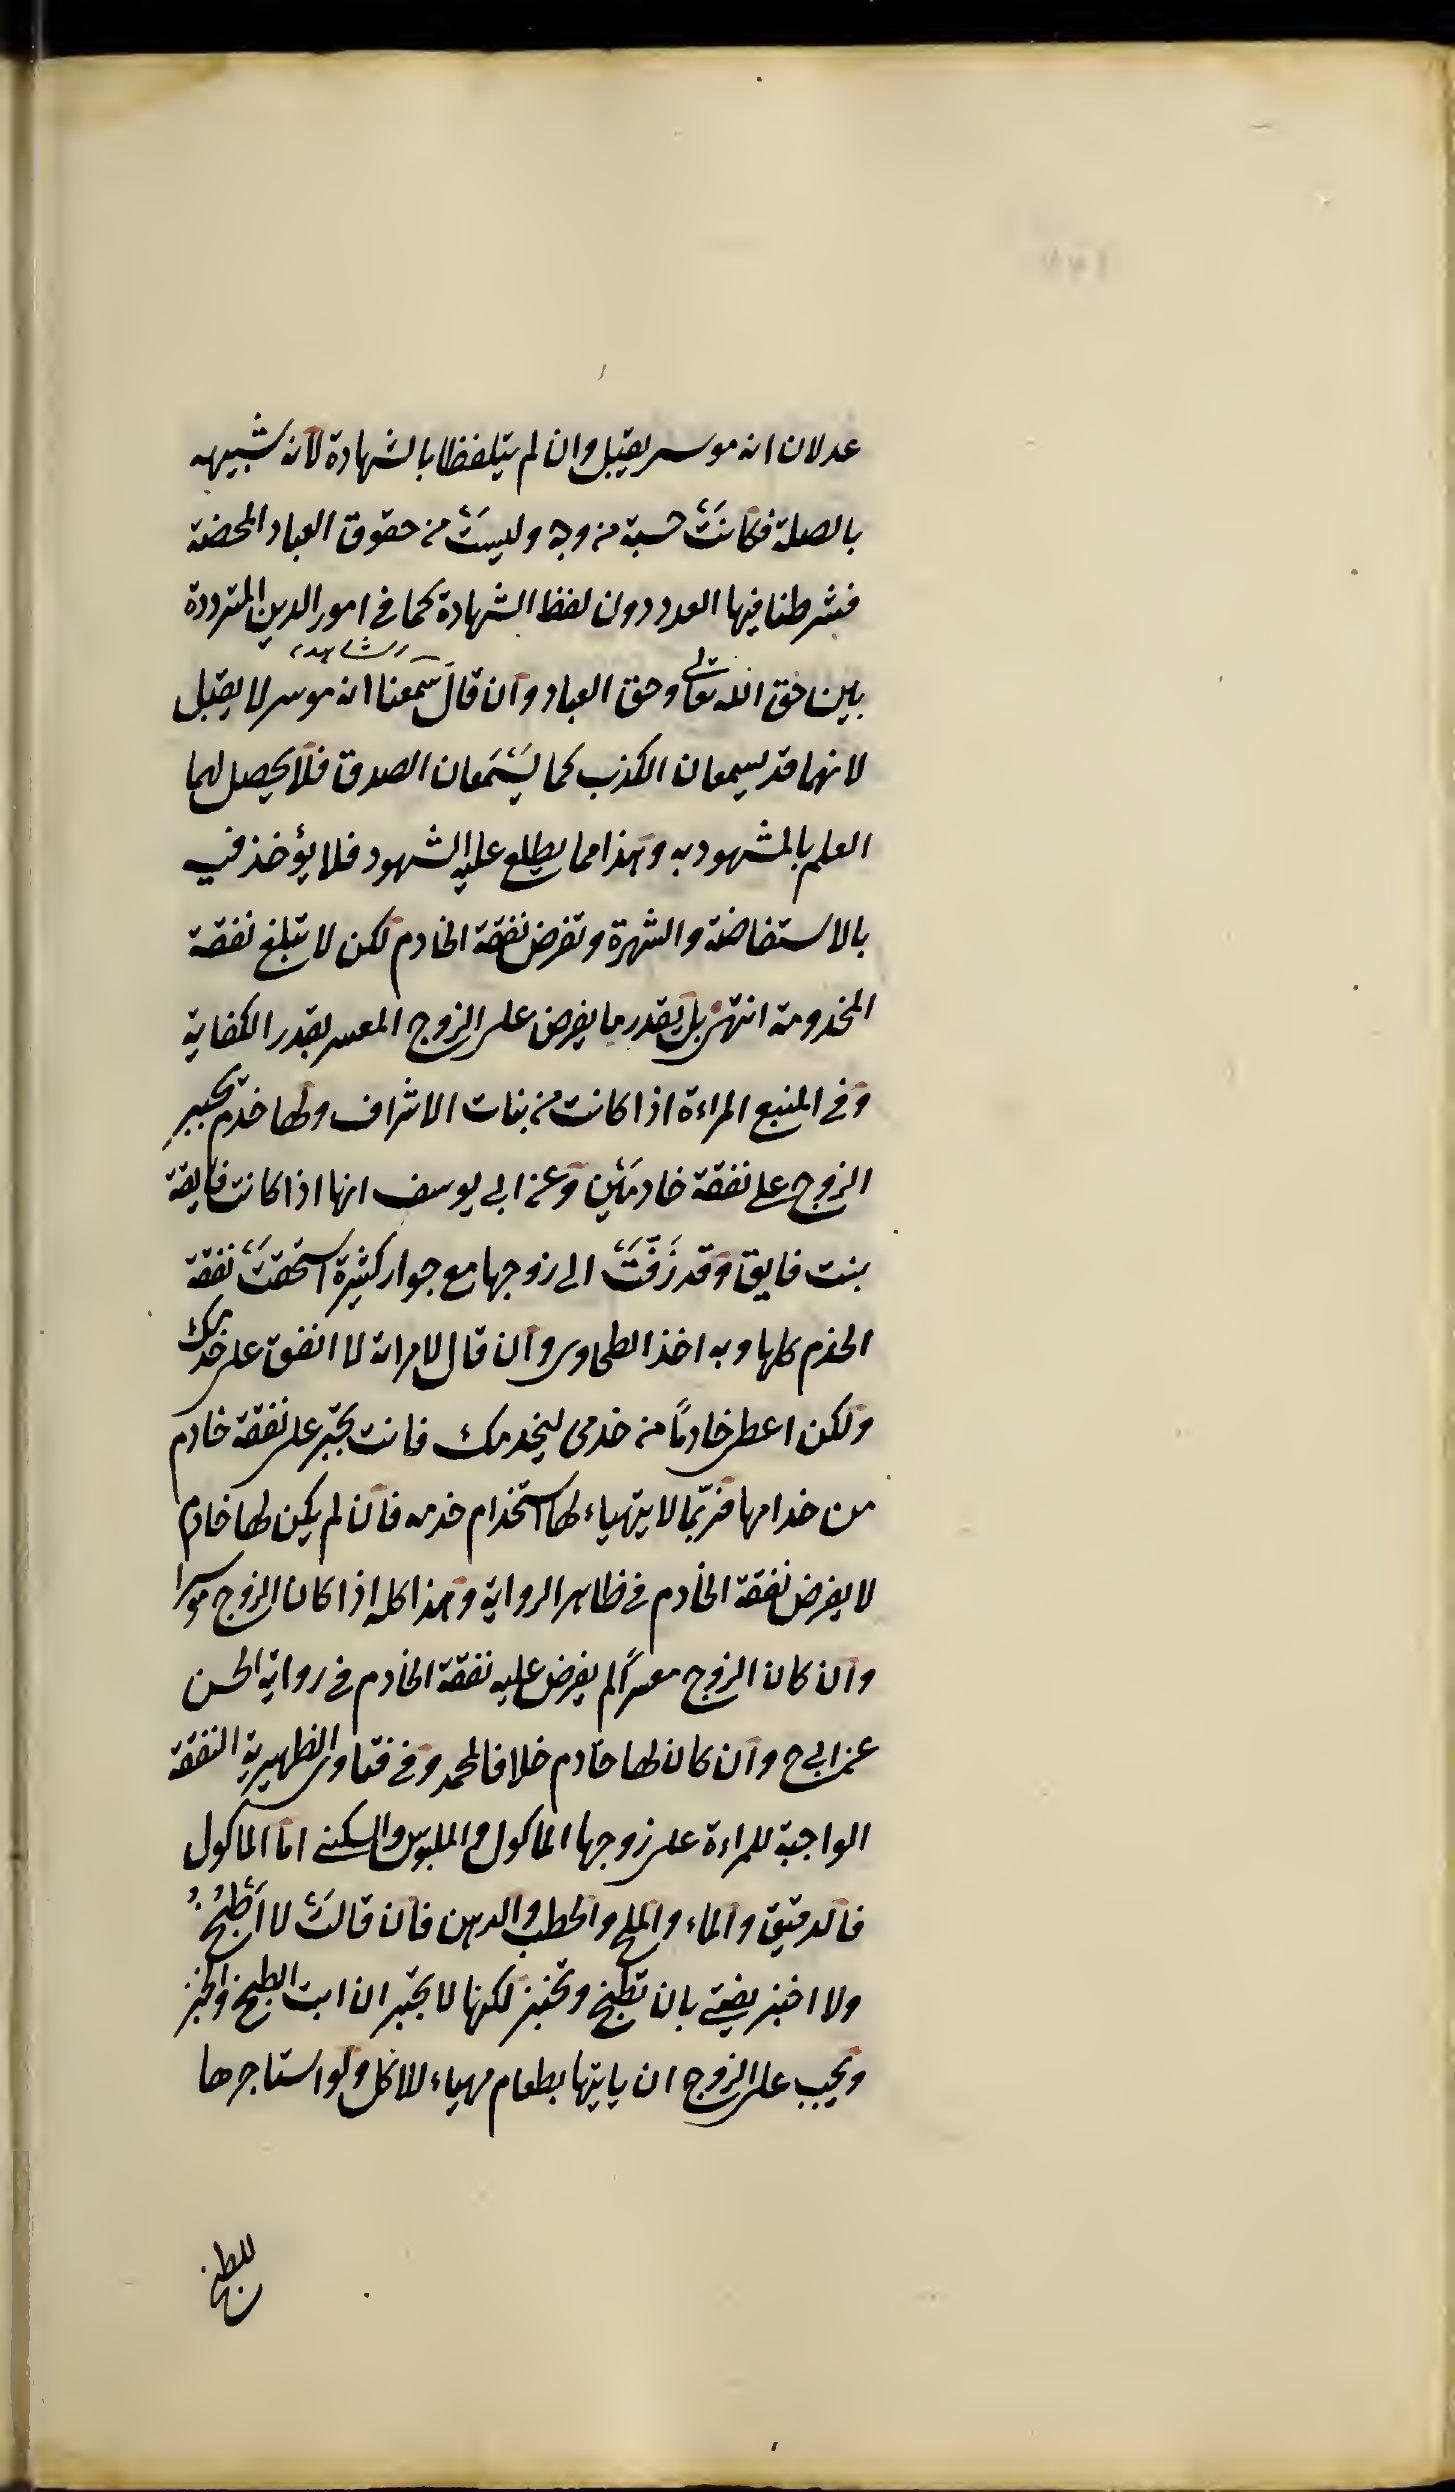 عدلان انه موسر يقبل وان لم يتلفظا بالشهادة لانه شبيهه
بالصلة فكانَتْ حسبة من وجه وليسَتْ من حقوق العباد المحضة
فشرطنا فيها العدد دون لفظ الشهادة كما فى امور الدين المترددة
بين حق الله تعالى وحق العباد وان قال سمعنا انه موسر لا يقبل
لانهما قد يسمعان الكذب كما يَسْتَمعان الصدق فلا يحصل لهما
العلم بالمشهود به وهذا مما يطلع عليه الشهود فلا يؤخذ فيه
بالاستفاضة والشهرة وتفرض نفقة الخادم لكن لا تبلغ نفقة
المخدومة انتهى بل يقدر ما يفرض على الزوج المعسر بقدر الكفاية
وفى المنبع المراءة اذا كانت من بنات الاشراف ولها خدم يجبر
الزوج على نفقة خادمَيْن وعن ابى يوسف انها اذا كانت فايقة
بنت فايق وقد زَفّتَْ الى زوجها مع جوار كثيرة استحقتَْ نفقة
الخدم كلها وبه اخذ الطحاوى وان قال لامراته لا انفق على خدمك
ولكن اعطى خادمًا من خدمى ليخدمك فانت يجبر على نفقة خادم
من خدامها فربّما لا يتهياء لها استخدام خدمه فان لم يكن لها خادم
لا يفرض نفقة الخادم فى ظاهر الرواية وهذا كله اذا كان الزوج موسرا
وان كان الزوج معسرًا لم يفرض عليه نفقة الخادم فى رواية الحسن
عن ابى ح وان كان لها خادم خلافا لمحمد وفى فتاوى الظهيرية النفقة
الواجبة للمراءة على زوجها الماكول والملبوس والسكنى اما الماكول
فالدقيق والماء والملح والحطب والدهن فان قالتْ لا اَطْبُخُ
ولا اخبز يفتى بان تطبخ وتخبز لكنها لا يجبر ان ابت الطبخ والخبز
ويجب على الزوج ان ياتيها بطعام مهياء للاكل ولو استاجرها
للطبخ